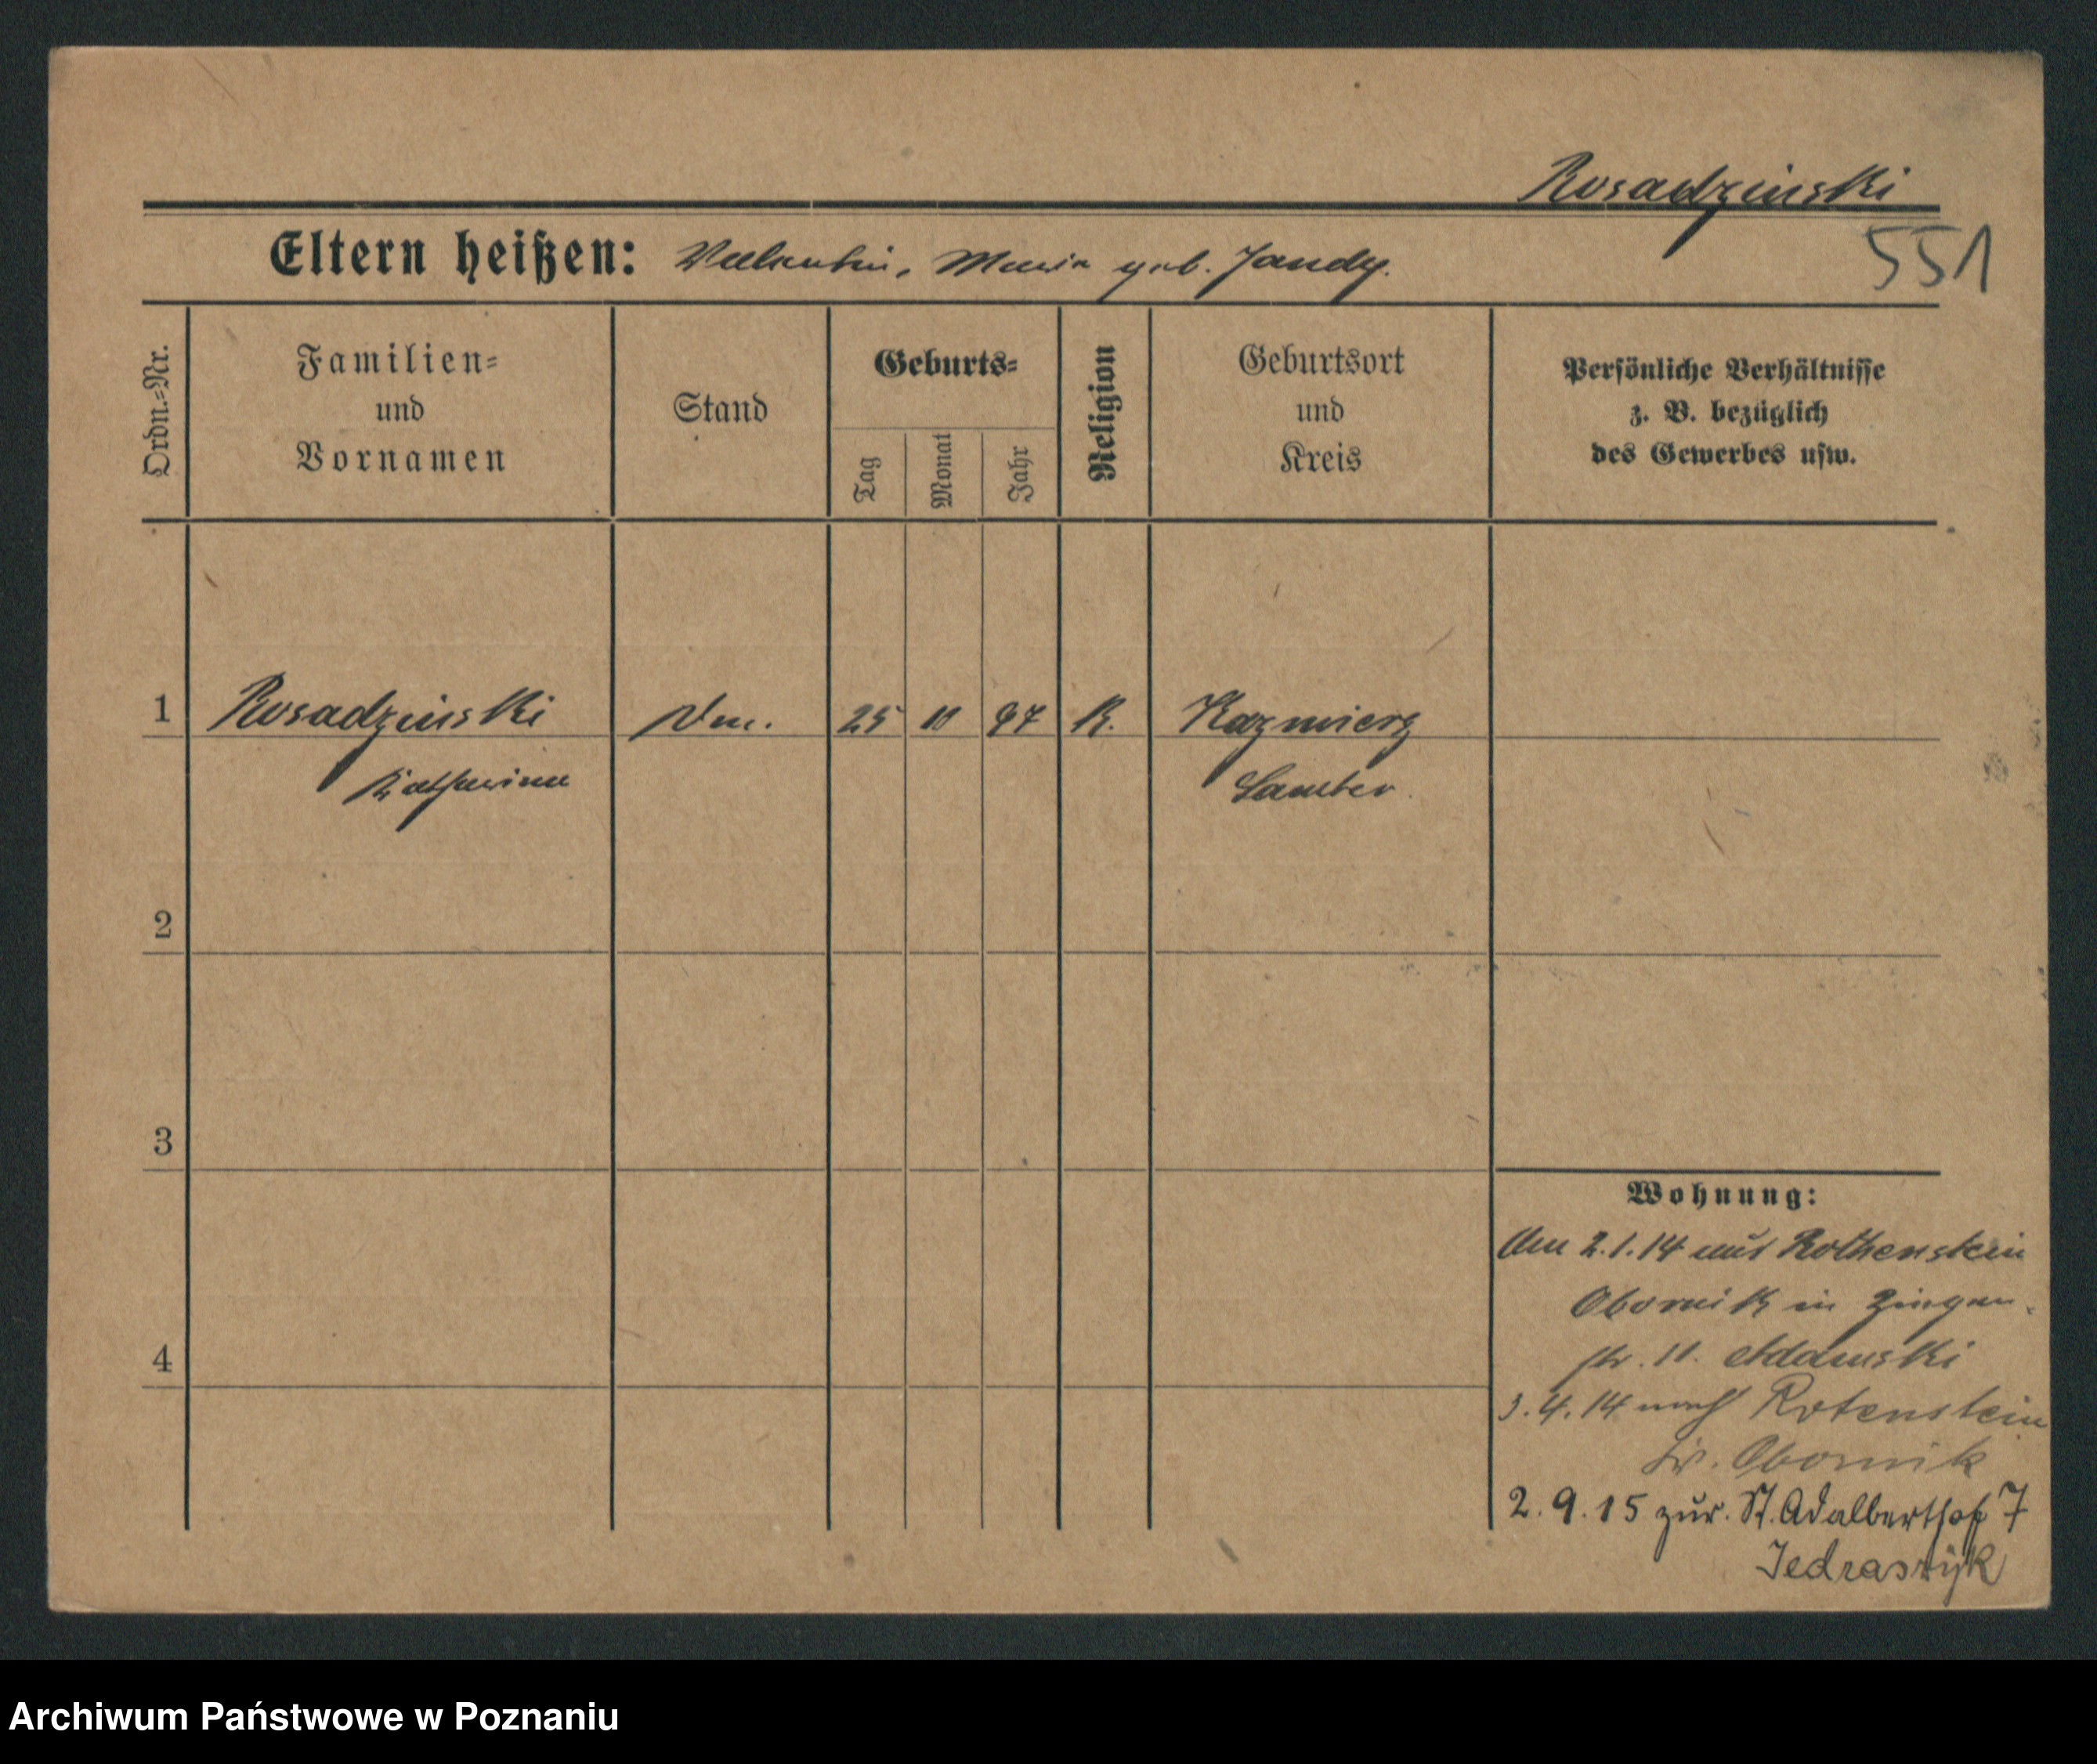 Rosadzinski
551
Eltern heißen: Valentin, Maria geb. Jandy.
Ordn.-Nr.
Familien-
und
Vornamen
Stand
Geburts-
Tag
Monat
Jahr
Religion
Geburtsort
und
Kreis
Persönliche Verhältnisse
z. B. bezüglich
des Gewerbes usw.
1 Rosadzinski 25 97 K. Kazmierz
Katharina Samter.
2
3
4
Wohnung:
Am 2.1.14 aus Rothenstein
Obornik in
str. 11. Adamski
3.4.14 nach Rotenstein
Kr. Obornik
2.9.15 zur. St. Adalberthof 7
Jedraszyk
Archiwum Państwowe w Poznaniu